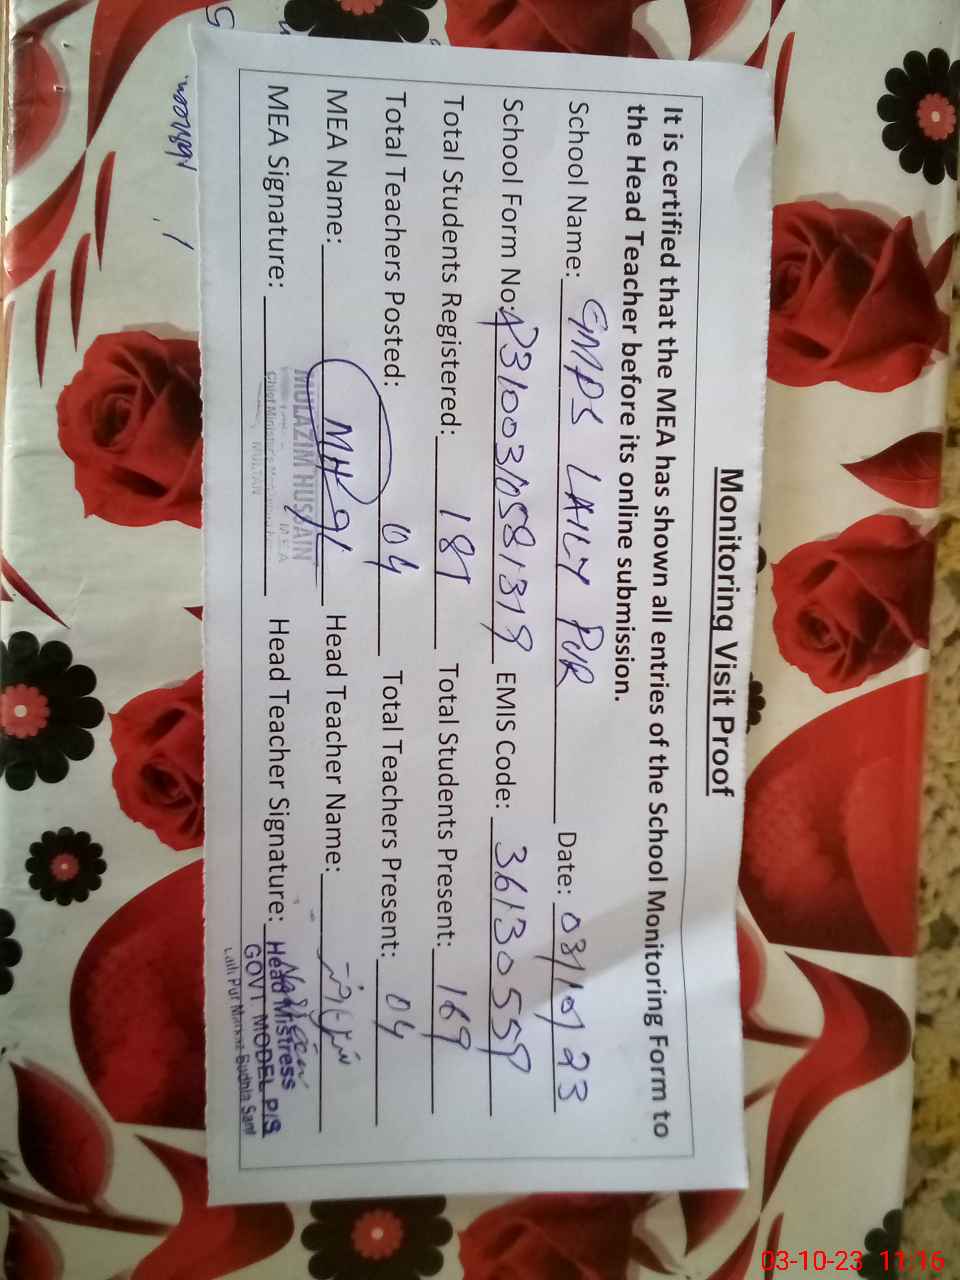 Monitoring Visit Proof
It is certified that the MEA has shown all entries of the School Monitoring Form to
the Head Teacher before its online submission.
School Name: GMPS LAILY PUR Date: 03/10/23
School Form No: 4231003/0581319 EMIS Code: 36130559
Total Students Registered: 181 Total Students Present: 169
Total Teachers Posted: 04 Total Teachers Present: 04
MEA Name: Head Teacher Name:
MULAZIM HUSSAIN
MEA
MULTAN
MEA Signature: Head Teacher Signature:
Head Mistress
GOVT MODEL P/S
Laili Pur Markaz Budhla Sant
03-10-23 11:16